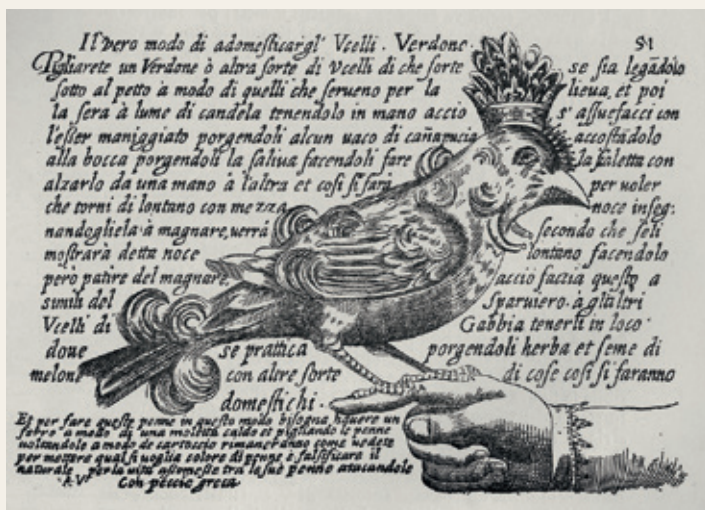 Il vero modo di adomesticar gl' Vcelli . Verdone . 91
Pigliarete un Verdone ò altra sorte di Vcelli di che sorte se sia legãdolo
sotto al petto à modo di quelli che serueno per la lieua, et poi
la sera à lume di candela tenendolo in mano accio s' assuefacci con
l'esser maniggiato porgendoli alcun uaco di cañapucia accostãdolo
alla bocca porgendoli la saliua facendoli fare la saletta con
alzarlo da una mano à l'altra et cosi si farà per uoler
che torni di lontano con mezza noce inseg:
nandogliela à magnare, uerrà secondo che seli
mostrarà detta noce lontano facendolo
però patire del magnare, accio faccia questo a
simili del Sparuiero . à gl'altri
Vcelli di Gabbia tenerli in loco
doue se prattica porgendoli herba et seme di
melone con altre sorte di cose cosi si faranno
domestichi .
Et per fare queste penne in questo modo bisogna, hauere un
ferro a modo di una molletta caldo et pigliando le penne
uoltandole a modo de cartoccio rimaneranno come uedete
per mettere qual si uoglia colore di penne è falsificare il
naturale per la uità tra le sue penne atacandole
con peccie greca